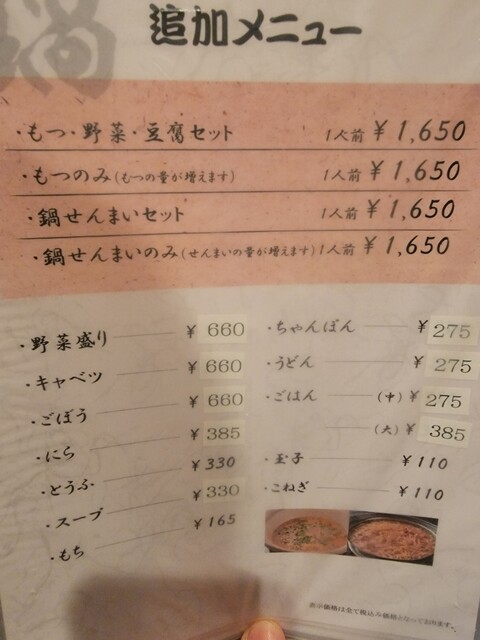 鍋
追加メニュー
・もつ・野菜・豆腐セット 1人前 ¥1,650
・もつのみ(もつの量が増えます) 1人前 ¥1,650
・鍋せんまいセット 1人前 ¥1,650
・鍋せんまいのみ(せんまいの量が増えます) 1人前 ¥1,650
・野菜盛り ¥660
・キャベツ ¥660
・ごぼう ¥660
・にら ¥385
・とうふ ¥330
・スープ ¥330
・もち ¥165
・ちゃんぽん ¥275
・うどん ¥275
・ごはん (中) ¥275
(大) ¥385
・玉子 ¥110
・こねぎ ¥110
表示価格は全て税込み価格となっております。